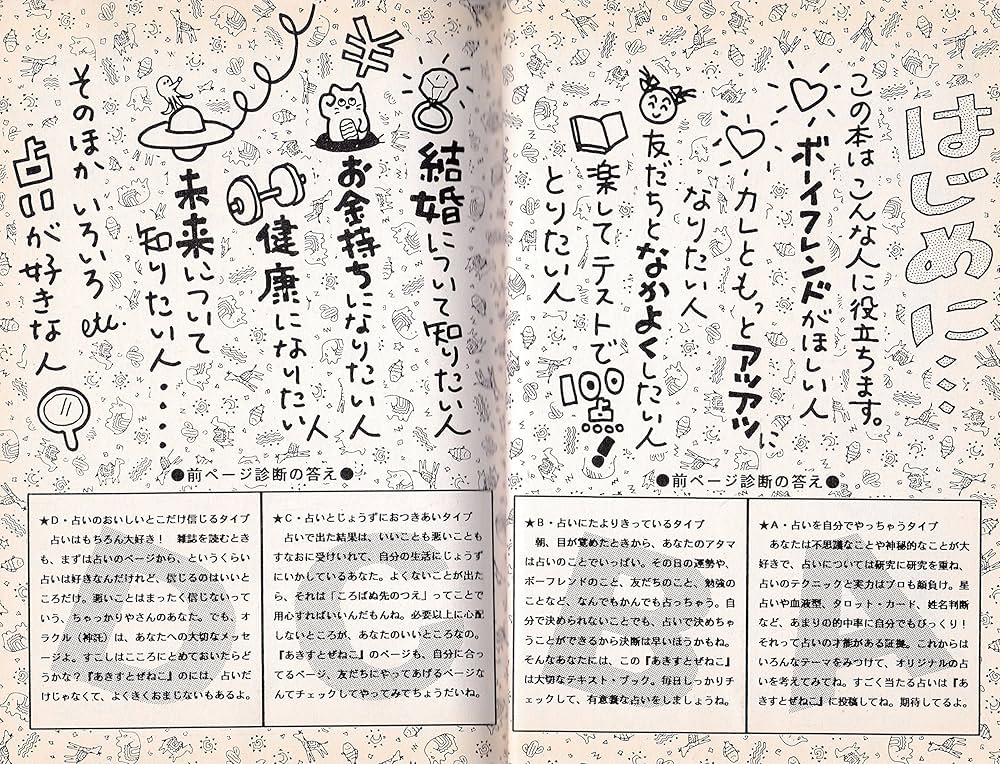 はじめに…
この本はこんな人に役立ちます。
ボーイフレンドがほしい人
カレともっとアツアツに
なりたい人
友だちとなかよくしたい人
楽してテストで100点!
とりたい人
結婚について知りたい人
¥
お金持ちになりたい人
健康になりたい人
未来について
知りたい人・・・・・
そのほかいろいろetc.
占いが好きな人
●前ページ診断の答え●
★A・占いを自分でやっちゃうタイプ
あなたは不思議なことや神秘的なことが大
好きで、占いについては研究に研究を重ね、
占いのテクニックと実力はプロも顔負け。星
占いや血液型、タロット・カード、姓名判断
など、あまりの的中率に自分でもびっくり!
それって占いの才能がある証拠。これからは
いろんなテーマをみつけて、オリジナルの占
いを考えてみてね。すごく当たる占いは『あ
きすとぜねこ』に投稿してね。期待してるよ。
★B・占いにたよりきっているタイプ
朝、目が覚めたときから、あなたのアタマ
は占いのことでいっぱい。その日の運勢や、
ボーフレンドのこと、友だちのこと、勉強の
ことなど、なんでもかんでも占っちゃう。自
分で決められないことでも、占いで決めちゃ
うことができるから決断は早いほうかもね。
そんなあなたには、この『あきすとぜねこ』
は大切なテキスト・ブック。毎日しっかりチ
ェックして、有意義な占いをしましょうね。
●前ページ診断の答え●
★C・占いとじょうずにおつきあいタイプ
占いで出た結果は、いいことも悪いことも
すなおに受けいれて、自分の生活にじょうず
にいかしているあなた。よくないことが出た
ら、それは「ころばぬ先のつえ」ってことで
用心すればいいんだもんね。必要以上に心配
しないところが、あなたのいいところなの。
『あきすとぜねこ』のページも、自分に合っ
てるページ、友だちにやってあげるページな
んてチェックしてやってみてちょうだいね。
★D・占いのおいしいとこだけ信じるタイプ
占いはもちろん大好き! 雑誌を読むとき
も、まずは占いのページから、というくらい
占いは好きなんだけれど、信じるのはいいと
ころだけ。悪いことはまったく信じないって
いう、ちゃっかりやさんのあなた。でも、オ
ラクル(神託)は、あなたへの大切なメッセ
ージよ。すこしはこころにとめておいたらど
うかな?『あきすとぜねこ』のには、占いだ
けじゃなくて、よくきくおまじないもあるよ。